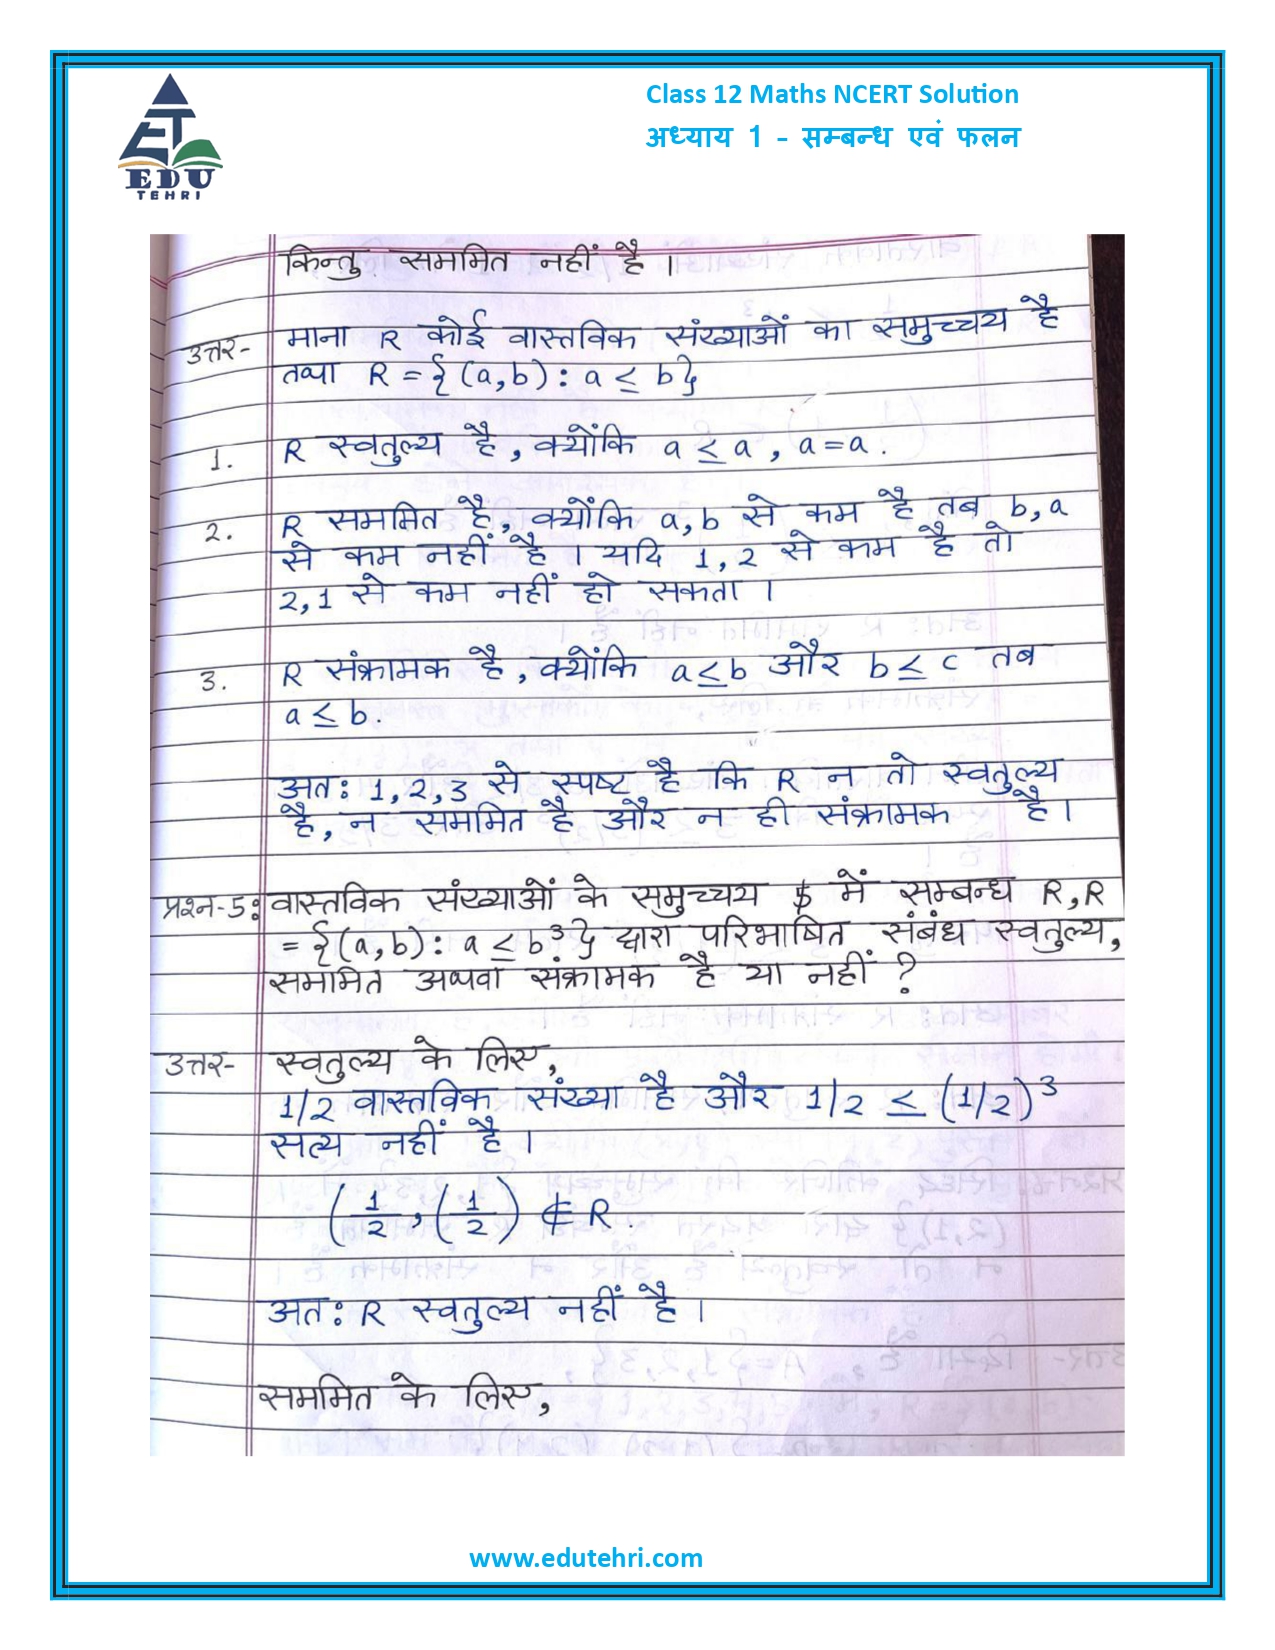 Class 12 Maths NCERT Solution
अध्याय 1 - सम्बन्ध एवं फलन
ET
EDU
TEHRI
किन्तु सममित नहीं है ।
उत्तर- माना R कोई वास्तविक संख्याओं का समुच्चय है
तथा R = {(a,b) : a ≤ b}
1. R स्वतुल्य है, क्योंकि a ≤ a, a=a.
2. R सममित है, क्योंकि a,b से कम है तब b,a
से कम नहीं है । यदि 1,2 से कम है तो
2,1 से कम नहीं हो सकता ।
3. R संक्रामक है, क्योंकि a≤b और b≤c तब
a≤b.
अत: 1,2,3 से स्पष्ट है कि R न तो स्वतुल्य
है, न सममित है और न ही संक्रामक है ।
प्रश्न-5: वास्तविक संख्याओं के समुच्चय में सम्बन्ध R,R
= {(a,b) : a ≤ b³} द्वारा परिभाषित संबंध स्वतुल्य,
सममित अथवा संक्रामक है या नहीं ?
उत्तर- स्वतुल्य के लिए,
1/2 वास्तविक संख्या है और 1/2 ≤ (1/2)³
सत्य नहीं है ।
(1/2, (1/2) ⊄ R.
अत: R स्वतुल्य नहीं है ।
सममित के लिए,
www.edutehri.com